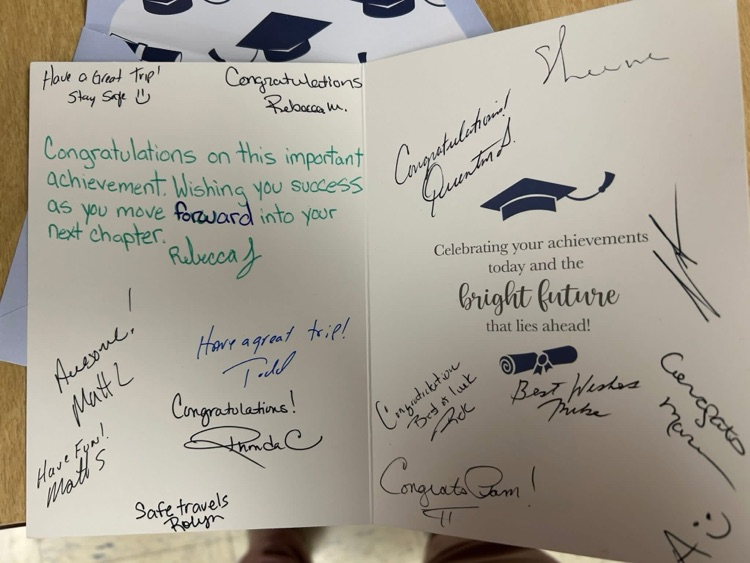 Have a Great Trip!
Stay Safe
Congratulations
Rebecca M.
Congratulations on this important
achievement. Wishing you success
as you move forward into your
next chapter.
Rebecca J
Awesome!
Matt L
Have a great trip!
Todd
Congratulations!
Rhonda C
Have Fun!
Matt S
Safe travels
Robyn
Congratulations!
Quentin S.
Celebrating your achievements
today and the
bright future
that lies ahead!
Congratulations
Best of luck
Best Wishes
Mike
Congrats
Congrats Pam!